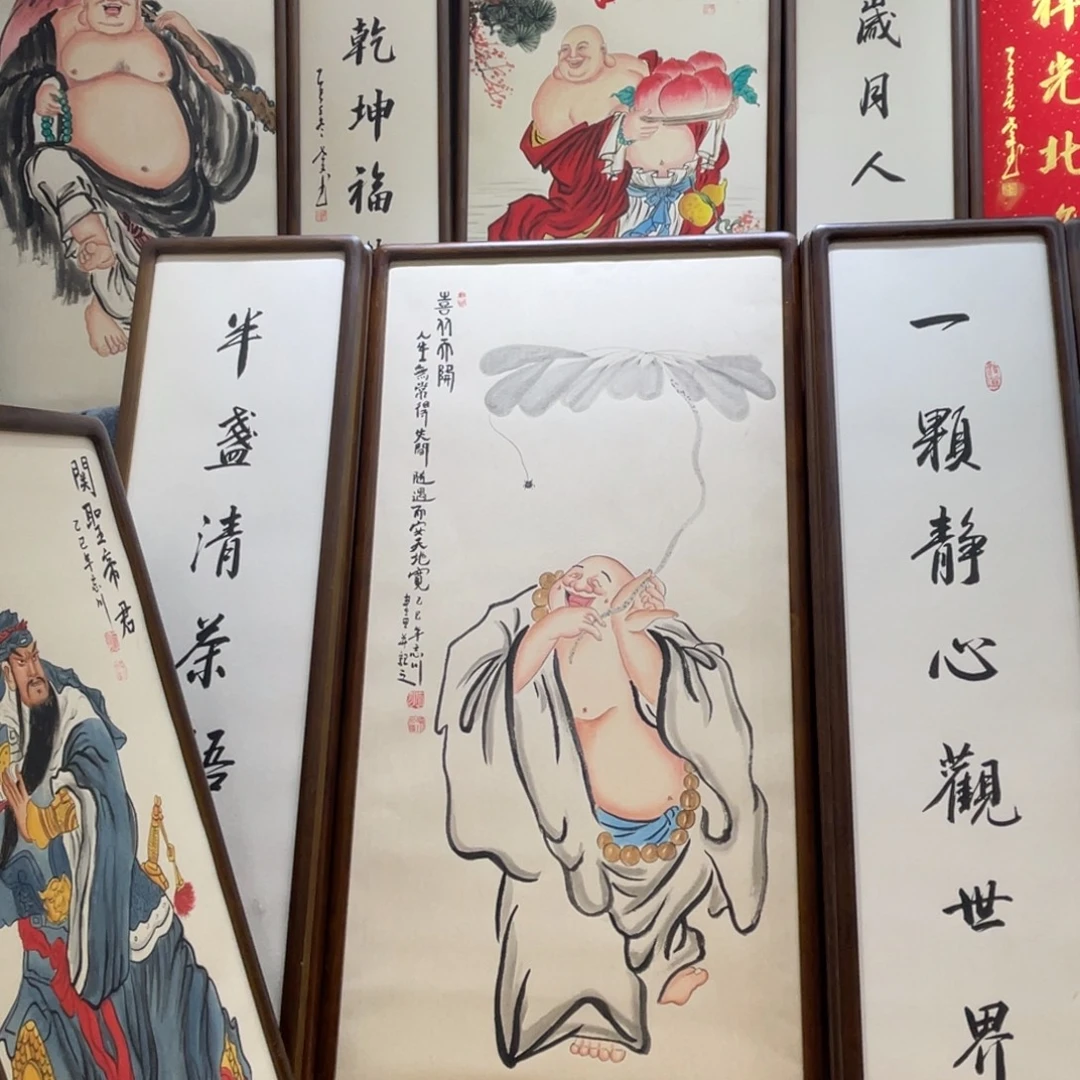 乾坤福
歲月人
祥光北
半盞清茶悟
喜从天降
人生無常得失間 隨遇而安天地寬 乙巳年志川
一顆靜心觀世界
關聖帝君
乙巳年志川